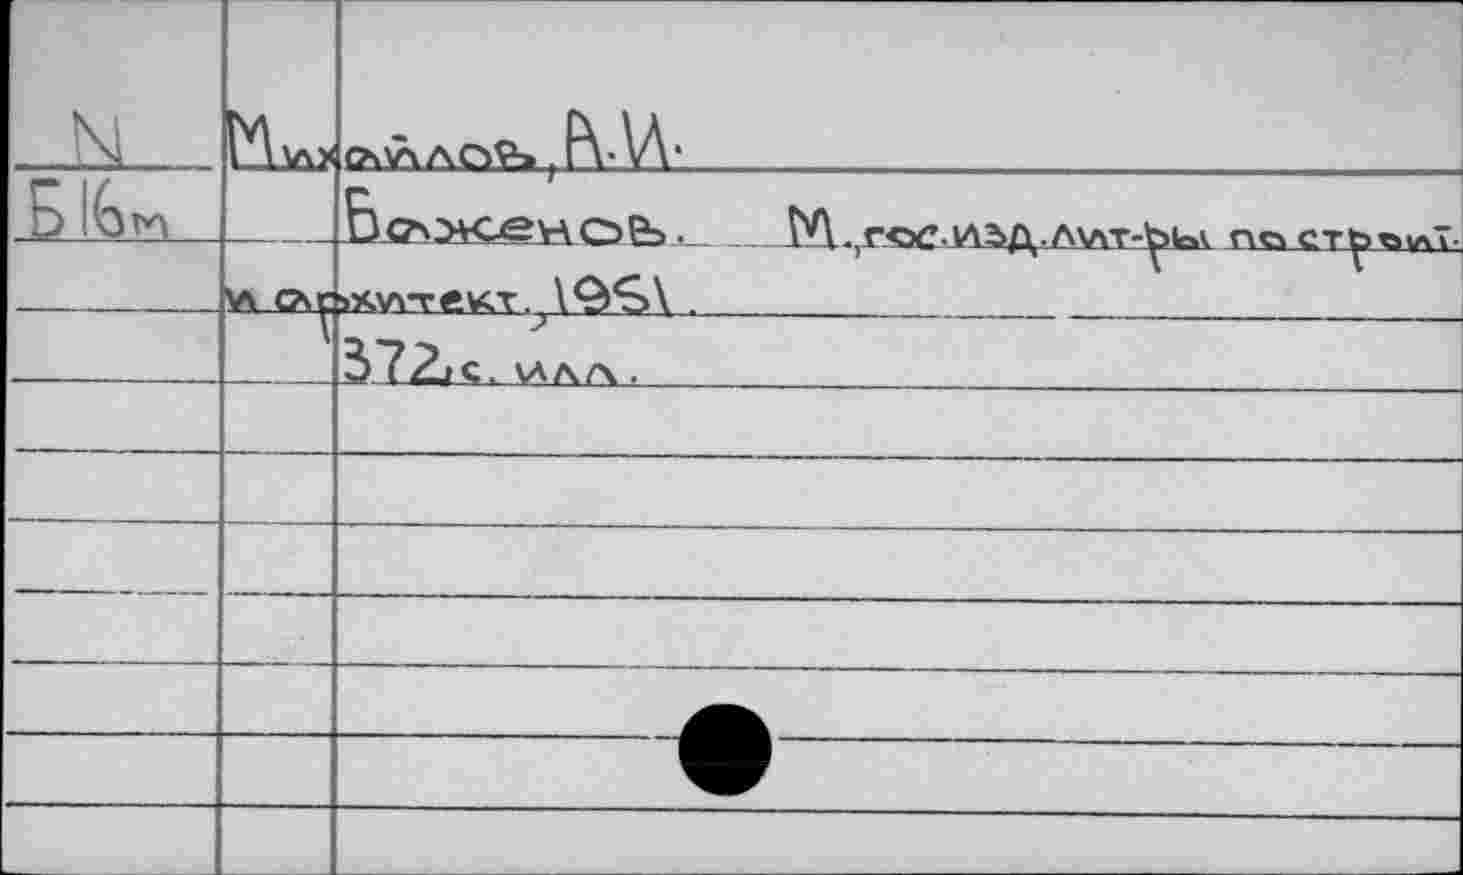 N Михайлов, А.И.
Б16м Баженов. М., гос. изд. лит-ры по строит.
и архитект., 1951.
372, с. илл.